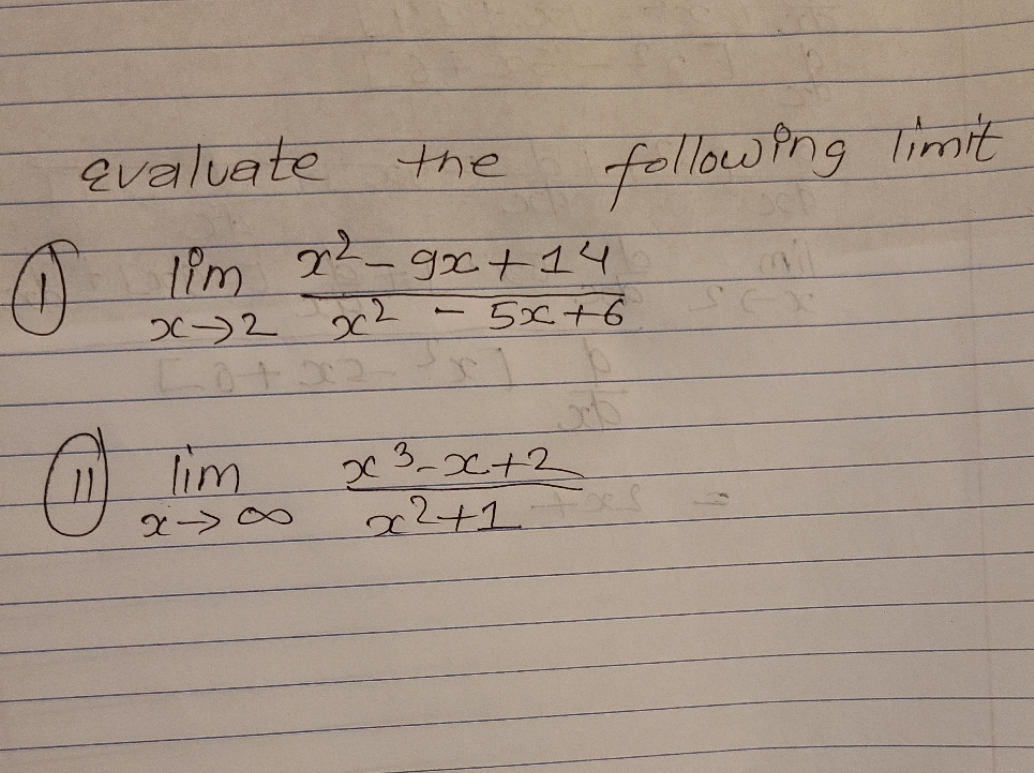 evaluate the following limit
I lim x²-9x+14
x→2 x² - 5x+6
II lim x³-x+2
x→∞ x²+1